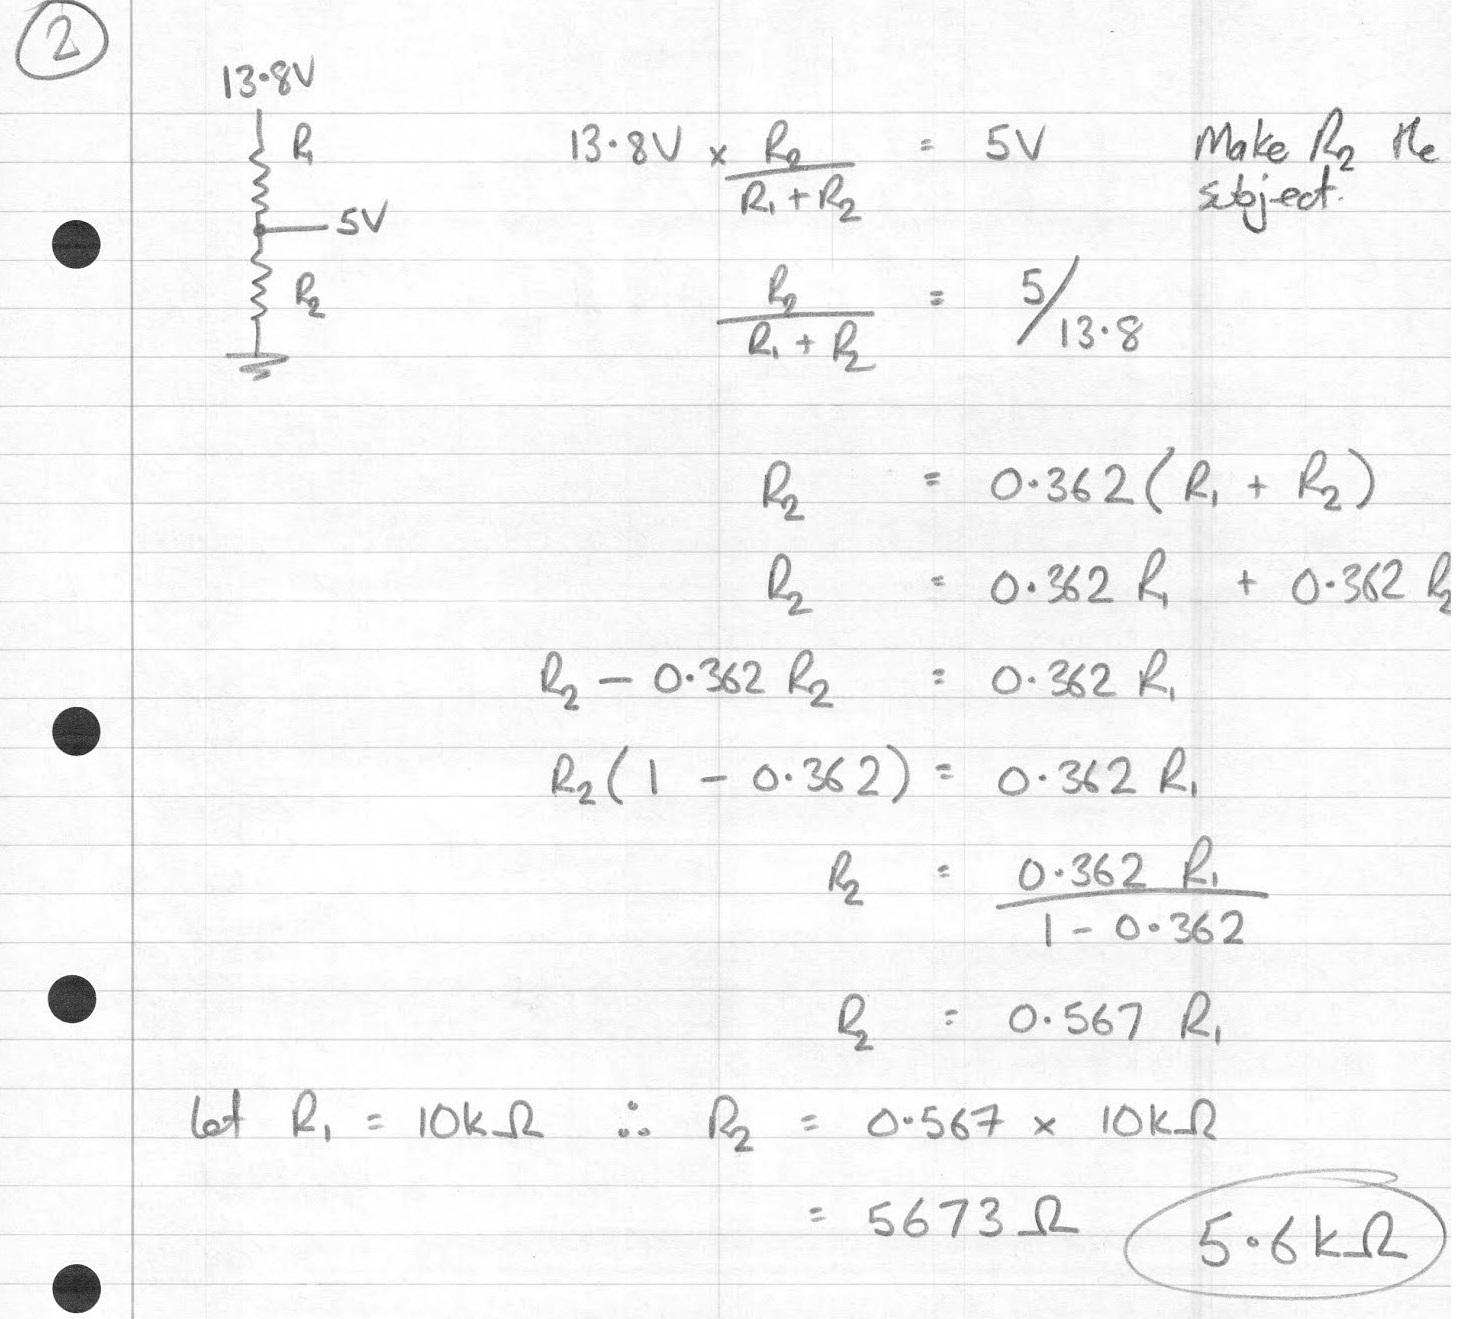 2
13.8V
R1
5V
R2
13.8V × R2 / R1 + R2 = 5V Make R2 the
subject.
R2 / R1 + R2 = 5/13.8
R2 = 0.362 (R1 + R2)
R2 = 0.362 R1 + 0.362 R2
R2 - 0.362 R2 = 0.362 R1
R2 (1 - 0.362) = 0.362 R1
R2 = 0.362 R1 / 1 - 0.362
R2 = 0.567 R1
let R1 = 10kΩ ∴ R2 = 0.567 × 10kΩ
= 5673Ω 5.6kΩ